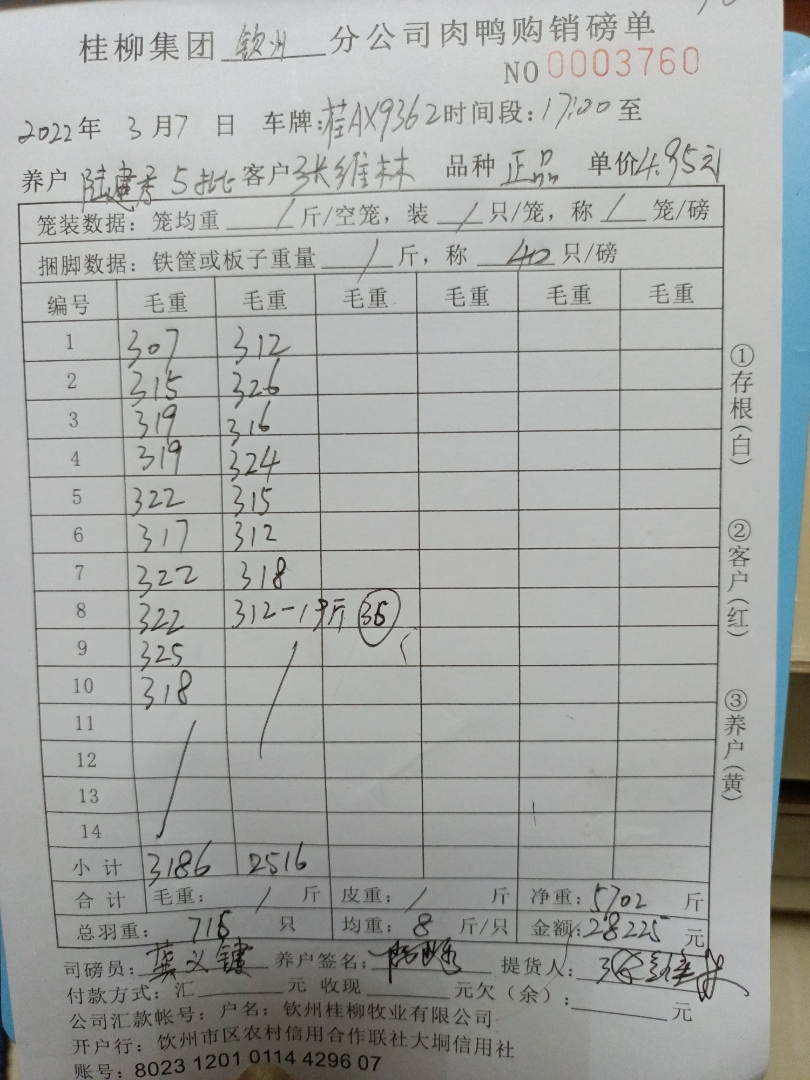 桂柳集团 钦州 分公司肉鸭购销磅单
NO 0003760
2022年 3月7日 车牌:桂AX9362 时间段:17:00至
养户 陆建 5批 客户 张维林 品种 正品 单价4.95元
笼装数据: 笼均重 / 斤/空笼, 装 / 只/笼, 称 / 笼/磅
捆脚数据: 铁筐或板子重量 / 斤, 称 40 只/磅
编号 毛重 毛重 毛重 毛重 毛重 毛重
1 307 312
2 315 326
3 319 316
4 319 324
5 322 315
6 317 312
7 322 318
8 322 312-19斤 36
9 325
10 318
11
12
13
14
小计 3186 2516
合计 毛重: / 斤 皮重: / 斤 净重: 5702 斤
总羽重: 716 只 均重: 8 斤/只 金额: 28225 元
司磅员: 龚义键 养户签名: 提货人: 张维林
付款方式: 汇 元 收现 元欠(余): 元
公司汇款帐号: 户名: 钦州桂柳牧业有限公司
开户行: 钦州市区农村信用合作联社大垌信用社
账号: 8023 1201 0114 4296 07
①存根(白)
②客户(红)
③养户(黄)